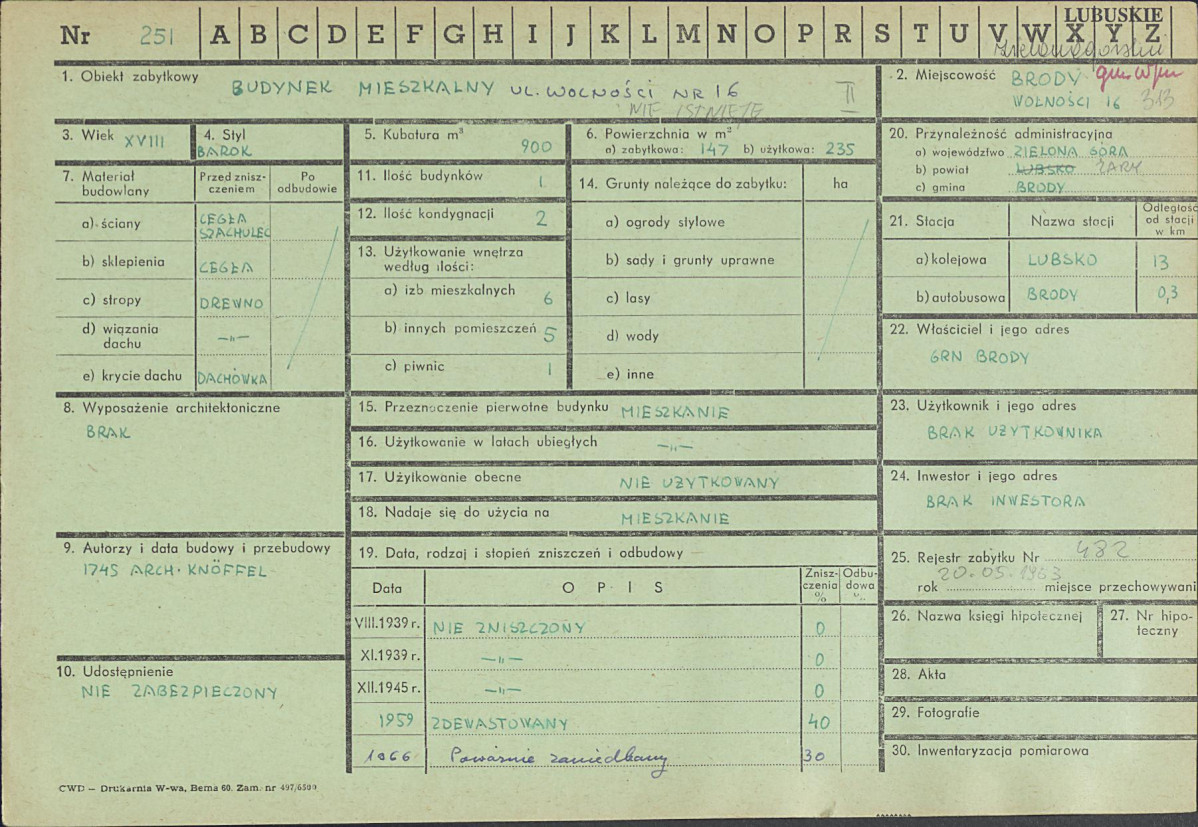 Nr 251 A B C D E F G H I J K L M N O P R S T U V W X Y Z
LUBUSKIE
1. Obiekt zabytkowy BUDYNEK MIESZKALNY UL. WOLNOŚCI NR 16
NIE ISTNIEJE II
2. Miejscowość BRODY
WOLNOŚCI 16 313
3. Wiek XVIII
4. Styl
BAROK
5. Kubatura m³ 900
6. Powierzchnia w m²
a) zabytkowa: 147 b) użytkowa: 235
20. Przynależność administracyjna
a) województwo ZIELONA GÓRA
b) powiat LUBSKO ŻARY
c) gmina BRODY
7. Materiał budowlany
Przed zniszczeniem
Po odbudowie
a) ściany CEGŁA
SZACHULEC
b) sklepienia CEGŁA
c) stropy DREWNO
d) wiązania dachu —„—
e) krycie dachu DACHÓWKA
11. Ilość budynków 1
12. Ilość kondygnacji 2
13. Użytkowanie wnętrza
według ilości:
a) izb mieszkalnych 6
b) innych pomieszczeń 5
c) piwnic 1
14. Grunty należące do zabytku: ha
a) ogrody stylowe
b) sady i grunty uprawne
c) lasy
d) wody
e) inne
21. Stacja Nazwa stacji Odległość od stacji w km
a) kolejowa LUBSKO 13
b) autobusowa BRODY 0,3
22. Właściciel i jego adres
GRN BRODY
8. Wyposażenie architektoniczne
BRAK
15. Przeznaczenie pierwotne budynku MIESZKANIE
16. Użytkowanie w latach ubiegłych —„—
17. Użytkowanie obecne NIE UŻYTKOWANY
18. Nadaje się do użycia na MIESZKANIE
23. Użytkownik i jego adres
BRAK UŻYTKOWNIKA
24. Inwestor i jego adres
BRAK INWESTORA
9. Autorzy i data budowy i przebudowy
1745 ARCH. KNÖFFEL
10. Udostępnienie
NIE ZABEZPIECZONY
19. Data, rodzaj i stopień zniszczeń i odbudowy
Data OPIS Zniszczenia % Odbudowa %
VIII.1939 r. NIE ZNISZCZONY 0
XI.1939 r. —„— 0
XII.1945 r. —„— 0
1959 ZDEWASTOWANY 40
1966 Poważnie zaniedbany 30
25. Rejestr zabytku Nr 482
20.05.1963
rok miejsce przechowywani
26. Nazwa księgi hipotecznej
27. Nr hipoteczny
28. Akta
29. Fotografie
30. Inwentaryzacja pomiarowa
CWD — Drukarnia W-wa, Bema 60. Zam. nr 497/6500